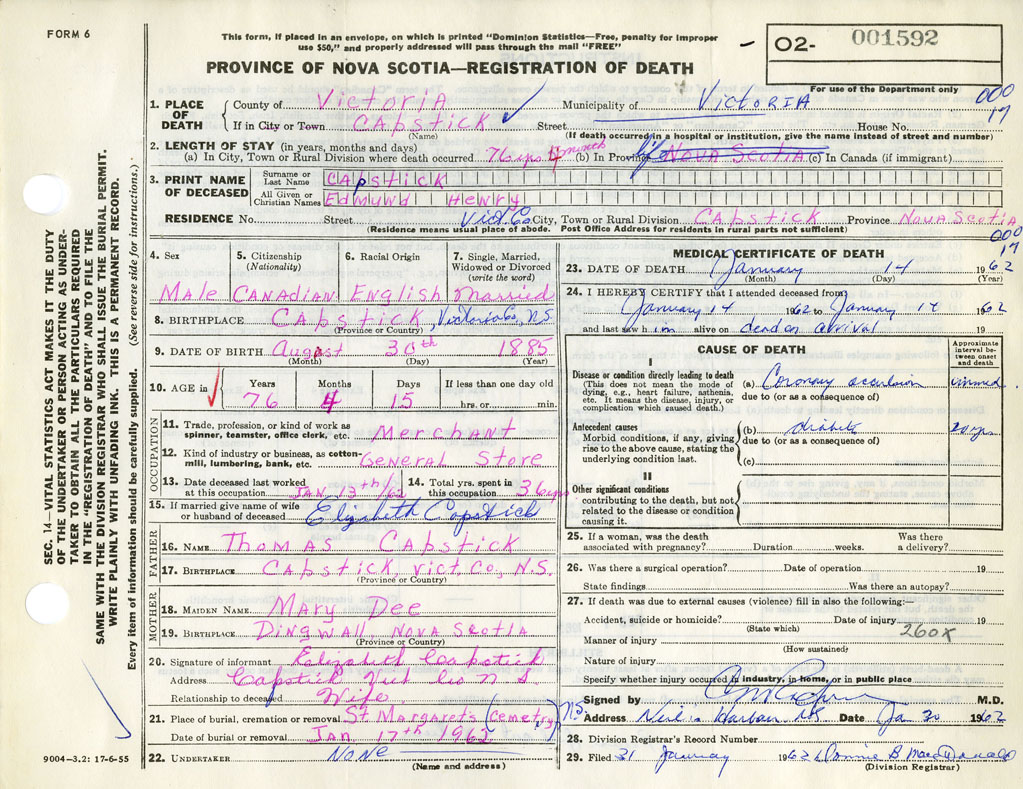 FORM 6
This form, if placed in an envelope, on which is printed "Dominion Statistics—Free, penalty for improper
use $50," and properly addressed will pass through the mail "FREE"
PROVINCE OF NOVA SCOTIA—REGISTRATION OF DEATH
O2- 001592
For use of the Department only
000
17
1. PLACE OF DEATH
County of Victoria Municipality of VICTORIA
If in City or Town Capstick Street House No.
(Name) (If death occurred in a hospital or institution, give the name instead of street and number)
2. LENGTH OF STAY (in years, months and days)
(a) In City, Town or Rural Division where death occurred 76 yrs 4 month (b) In Province life Nova Scotia (c) In Canada (if immigrant)
3. PRINT NAME OF DECEASED
Surname or Last Name Capstick
All Given or Christian Names Edmund Henry
RESIDENCE No. Street Vict Co City, Town or Rural Division Capstick Province Nova Scotia
(Residence means usual place of abode. Post Office Address for residents in rural parts not sufficient)
000
17
4. Sex 5. Citizenship (Nationality) 6. Racial Origin 7. Single, Married, Widowed or Divorced (write the word)
Male Canadian English Married
8. BIRTHPLACE Capstick, Victoria Co, N.S.
(Province or Country)
9. DATE OF BIRTH August 30th 1885
(Month) (Day) (Year)
10. AGE in Years Months Days If less than one day old
76 4 15 hrs. or min.
OCCUPATION
11. Trade, profession, or kind of work as spinner, teamster, office clerk, etc. Merchant
12. Kind of industry or business, as cotton-mill, lumbering, bank, etc. General Store
13. Date deceased last worked at this occupation Jan 13th/62 14. Total yrs. spent in this occupation 36 yrs
15. If married give name of wife or husband of deceased Elizabeth Capstick
FATHER
16. NAME Thomas Capstick
17. BIRTHPLACE Capstick, Vict. Co., N.S.
(Province or Country)
MOTHER
18. MAIDEN NAME Mary Dee
19. BIRTHPLACE Dingwall, Nova Scotia
(Province or Country)
20. Signature of informant Elizabeth Capstick
Address Capstick Vict Co N S
Relationship to deceased Wife
21. Place of burial, cremation or removal St Margarets (cemetry) N.S.
Date of burial or removal Jan 17th 1962
22. UNDERTAKER None
(Name and address)
MEDICAL CERTIFICATE OF DEATH
23. DATE OF DEATH January 14 1962
(Month) (Day) (Year)
24. I HEREBY CERTIFY that I attended deceased from
January 14 1962 to January 14 1962
and last saw h im alive on dead on arrival 19
CAUSE OF DEATH
Approximate interval between onset and death
I
Disease or condition directly leading to death
(This does not mean the mode of dying, e.g., heart failure, asthenia, etc. It means the disease, injury, or complication which caused death.)
(a) Coronary occlusion immed.
due to (or as a consequence of)
Antecedent causes
Morbid conditions, if any, giving rise to the above cause, stating the underlying condition last.
(b) diabetes 20 yrs.
due to (or as a consequence of)
(c)
II
Other significant conditions
contributing to the death, but not related to the disease or condition causing it.
25. If a woman, was the death associated with pregnancy? Duration weeks. Was there a delivery?
26. Was there a surgical operation? Date of operation 19
State findings Was there an autopsy?
27. If death was due to external causes (violence) fill in also the following:—
Accident, suicide or homicide? Date of injury 19
(State which) 260X
Manner of injury
(How sustained)
Nature of injury
Specify whether injury occurred in industry, in home, or in public place
Signed by M.D.
Address Neil's Harbour NS Date Jan 30 1962
28. Division Registrar's Record Number
29. Filed 31 January 1962 Bonnie B MacDonald
(Division Registrar)
SEC. 14—VITAL STATISTICS ACT MAKES IT THE DUTY
OF THE UNDERTAKER OR PERSON ACTING AS UNDER-
TAKER TO OBTAIN ALL THE PARTICULARS REQUIRED
IN THE "REGISTRATION OF DEATH" AND TO FILE THE
SAME WITH THE DIVISION REGISTRAR WHO SHALL ISSUE THE BURIAL PERMIT.
WRITE PLAINLY WITH UNFADING INK. THIS IS A PERMANENT RECORD.
Every item of information should be carefully supplied. (See reverse side for instructions.)
9004-3.2: 17-6-55